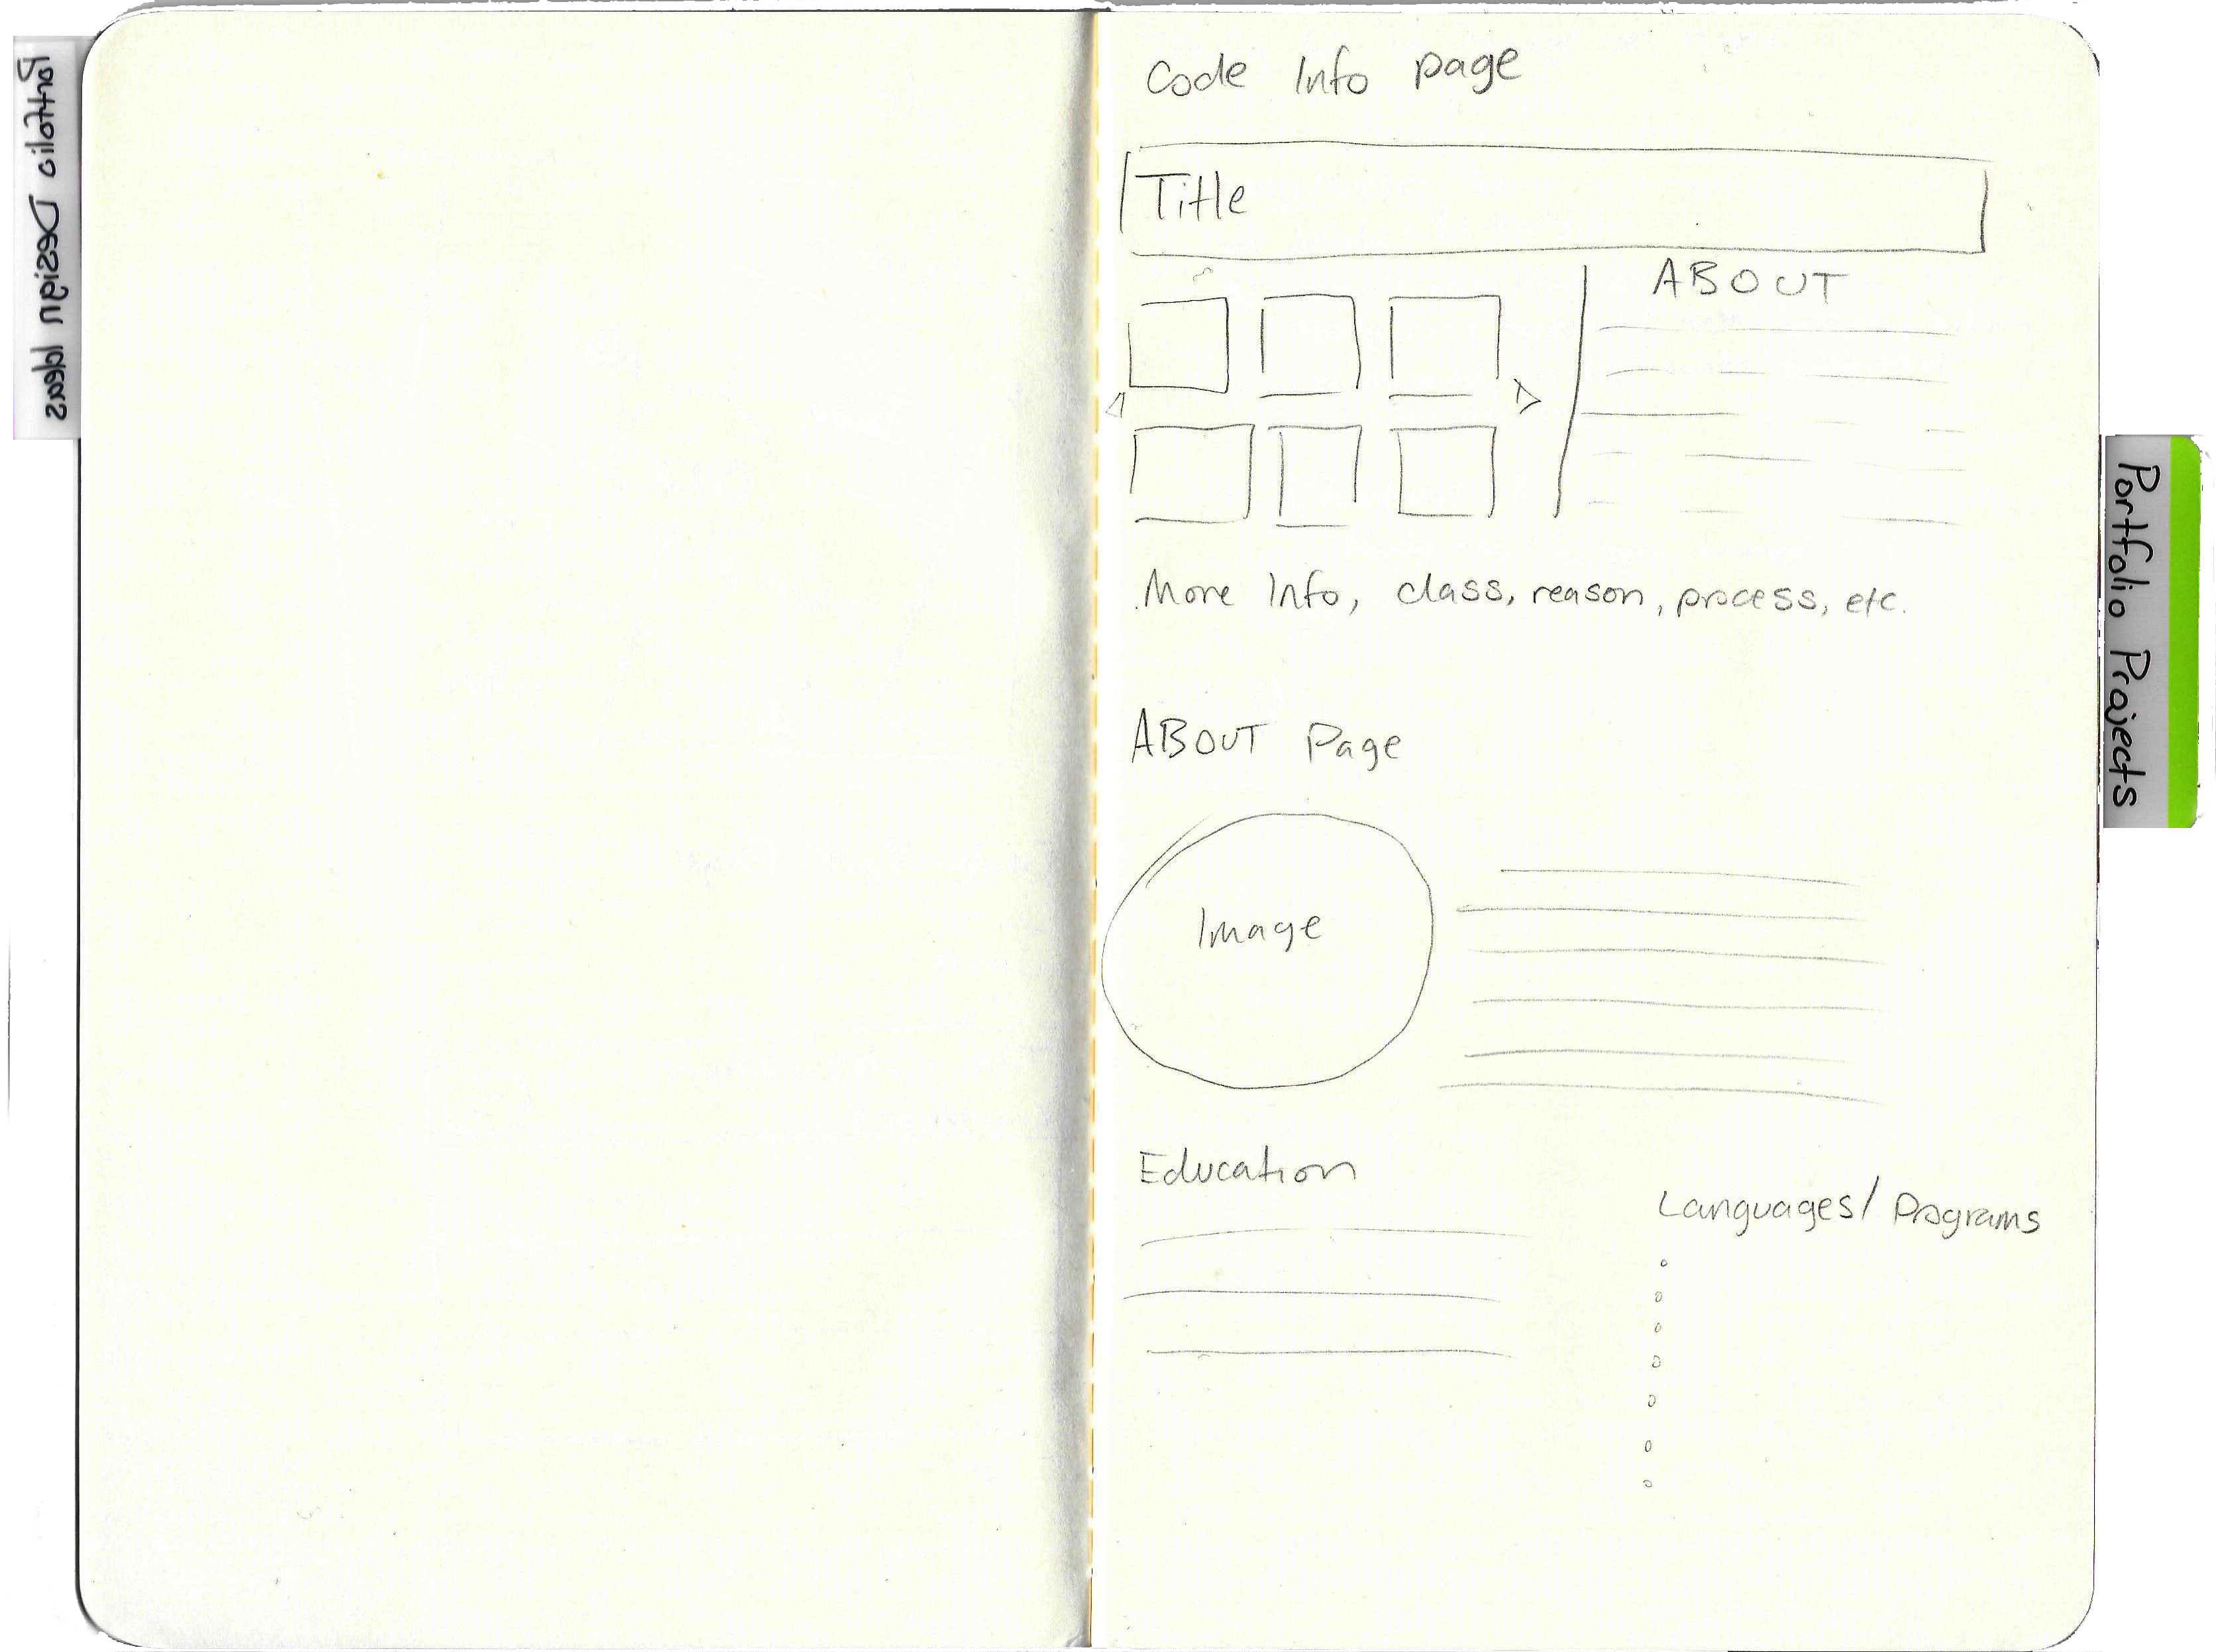 Portfolio Design Ideas
Code Info page
Title
ABOUT
More Info, class, reason, process, etc.
ABOUT Page
Image
Education
Languages/ Programs
Portfolio Projects